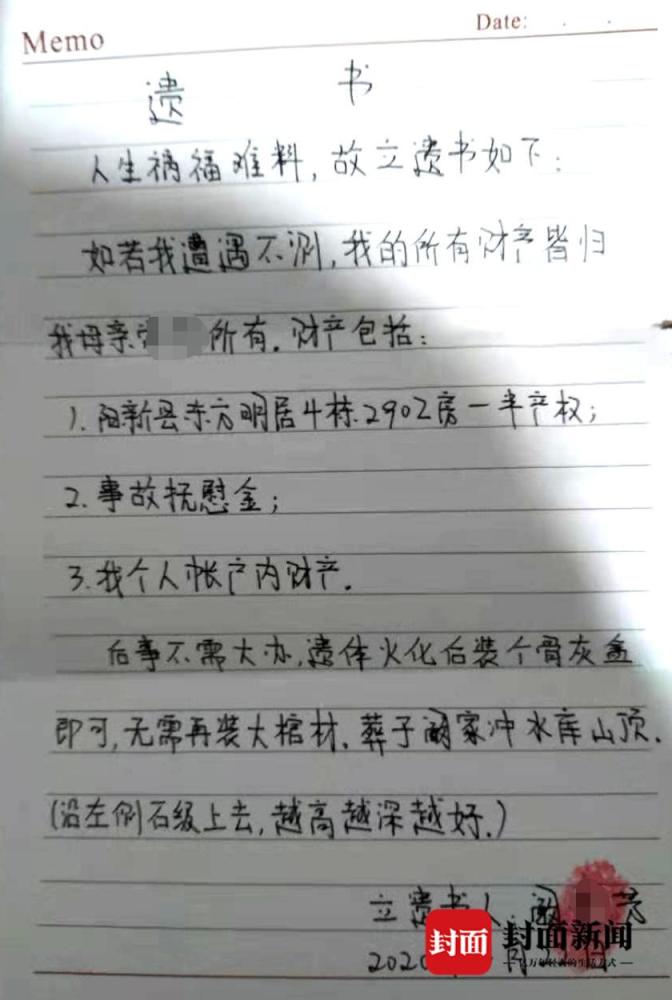 Memo Date:
遗 书
人生祸福难料，故立遗书如下：
如若我遭遇不测，我的所有财产皆归
我母亲 所有。财产包括：
1. 阳新县东方明居4栋2902房一半产权；
2. 事故抚慰金；
3. 我个人帐户内财产。
后事不需大办，遗体火化后装个骨灰盒
即可，无需再装大棺材。葬于阚家冲水库山顶。
(沿左侧石级上去，越高越深越好。)
立遗书人：
封面 封面新闻
亿万年轻人的生活方式
2020 月 日